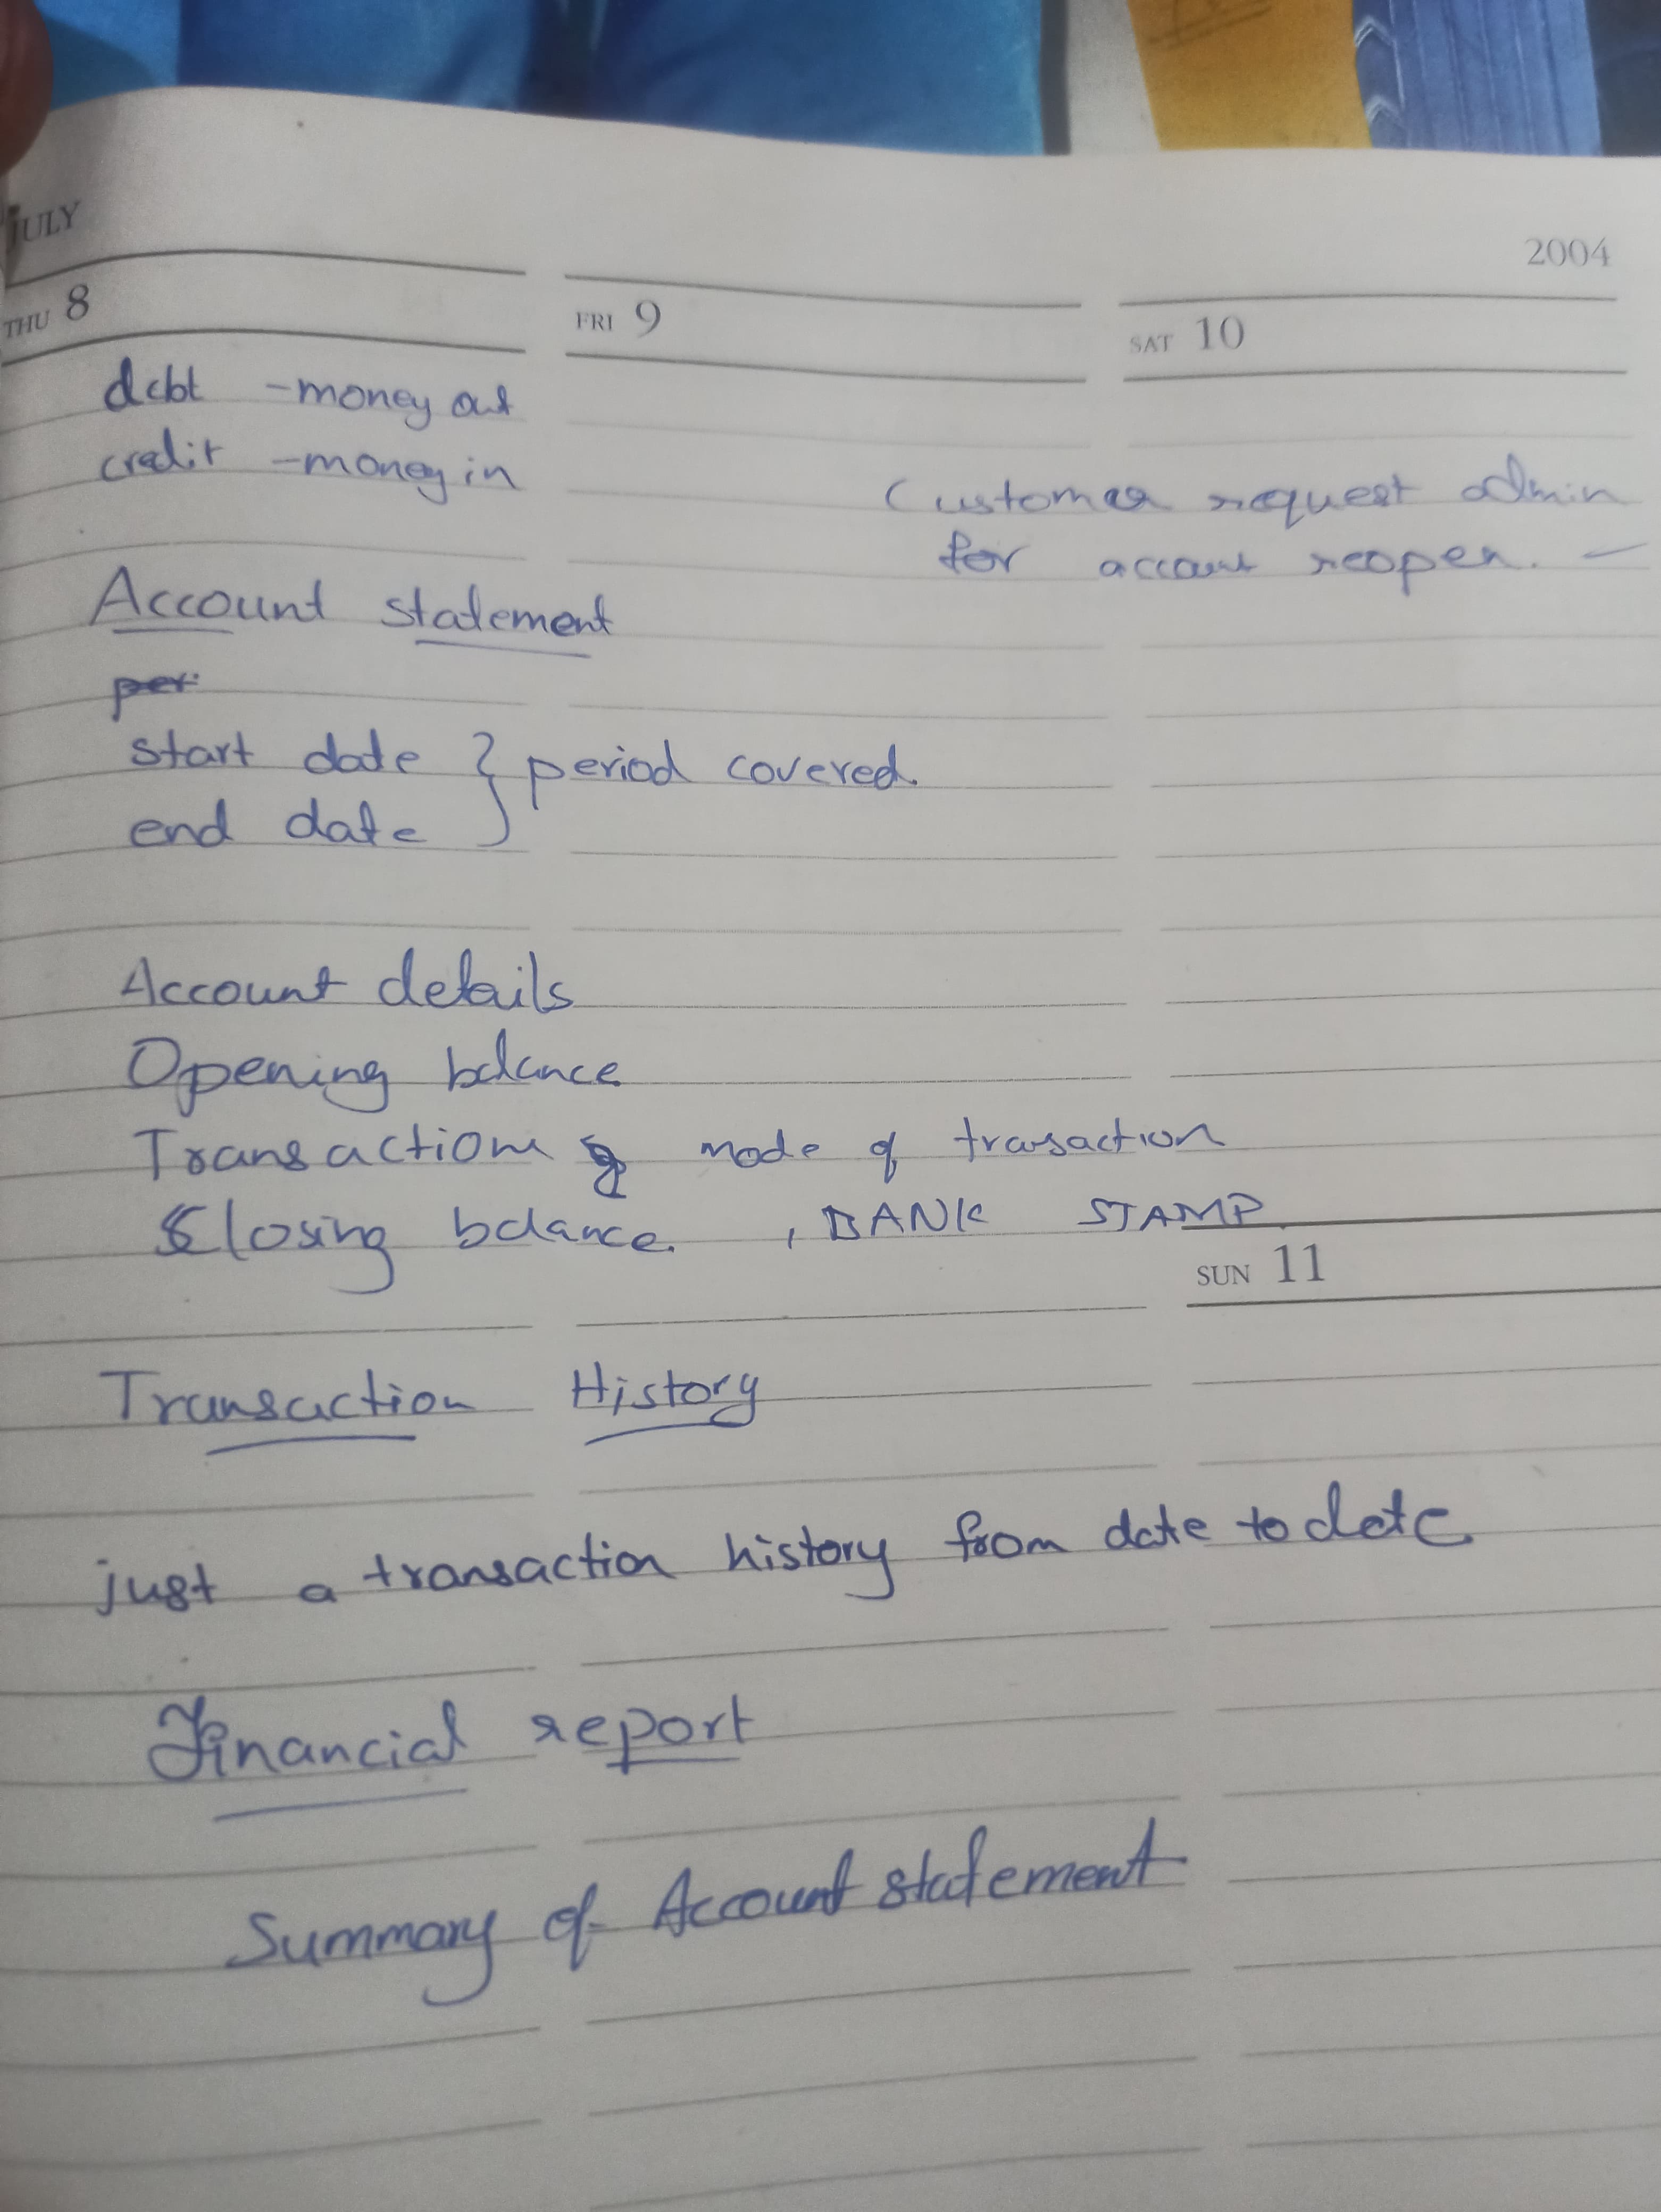 JULY
2004
THU 8
FRI 9
SAT 10
debt - money out
credit - money in
Customer request admin
for account reopen. -
Account statement
per
start date } period covered.
end date
Account details
Opening balance
Transaction & mode of transaction
Closing balance. , BANK STAMP
SUN 11
Transaction History
just a transaction history from date to date
Financial report
Summary of Account statement